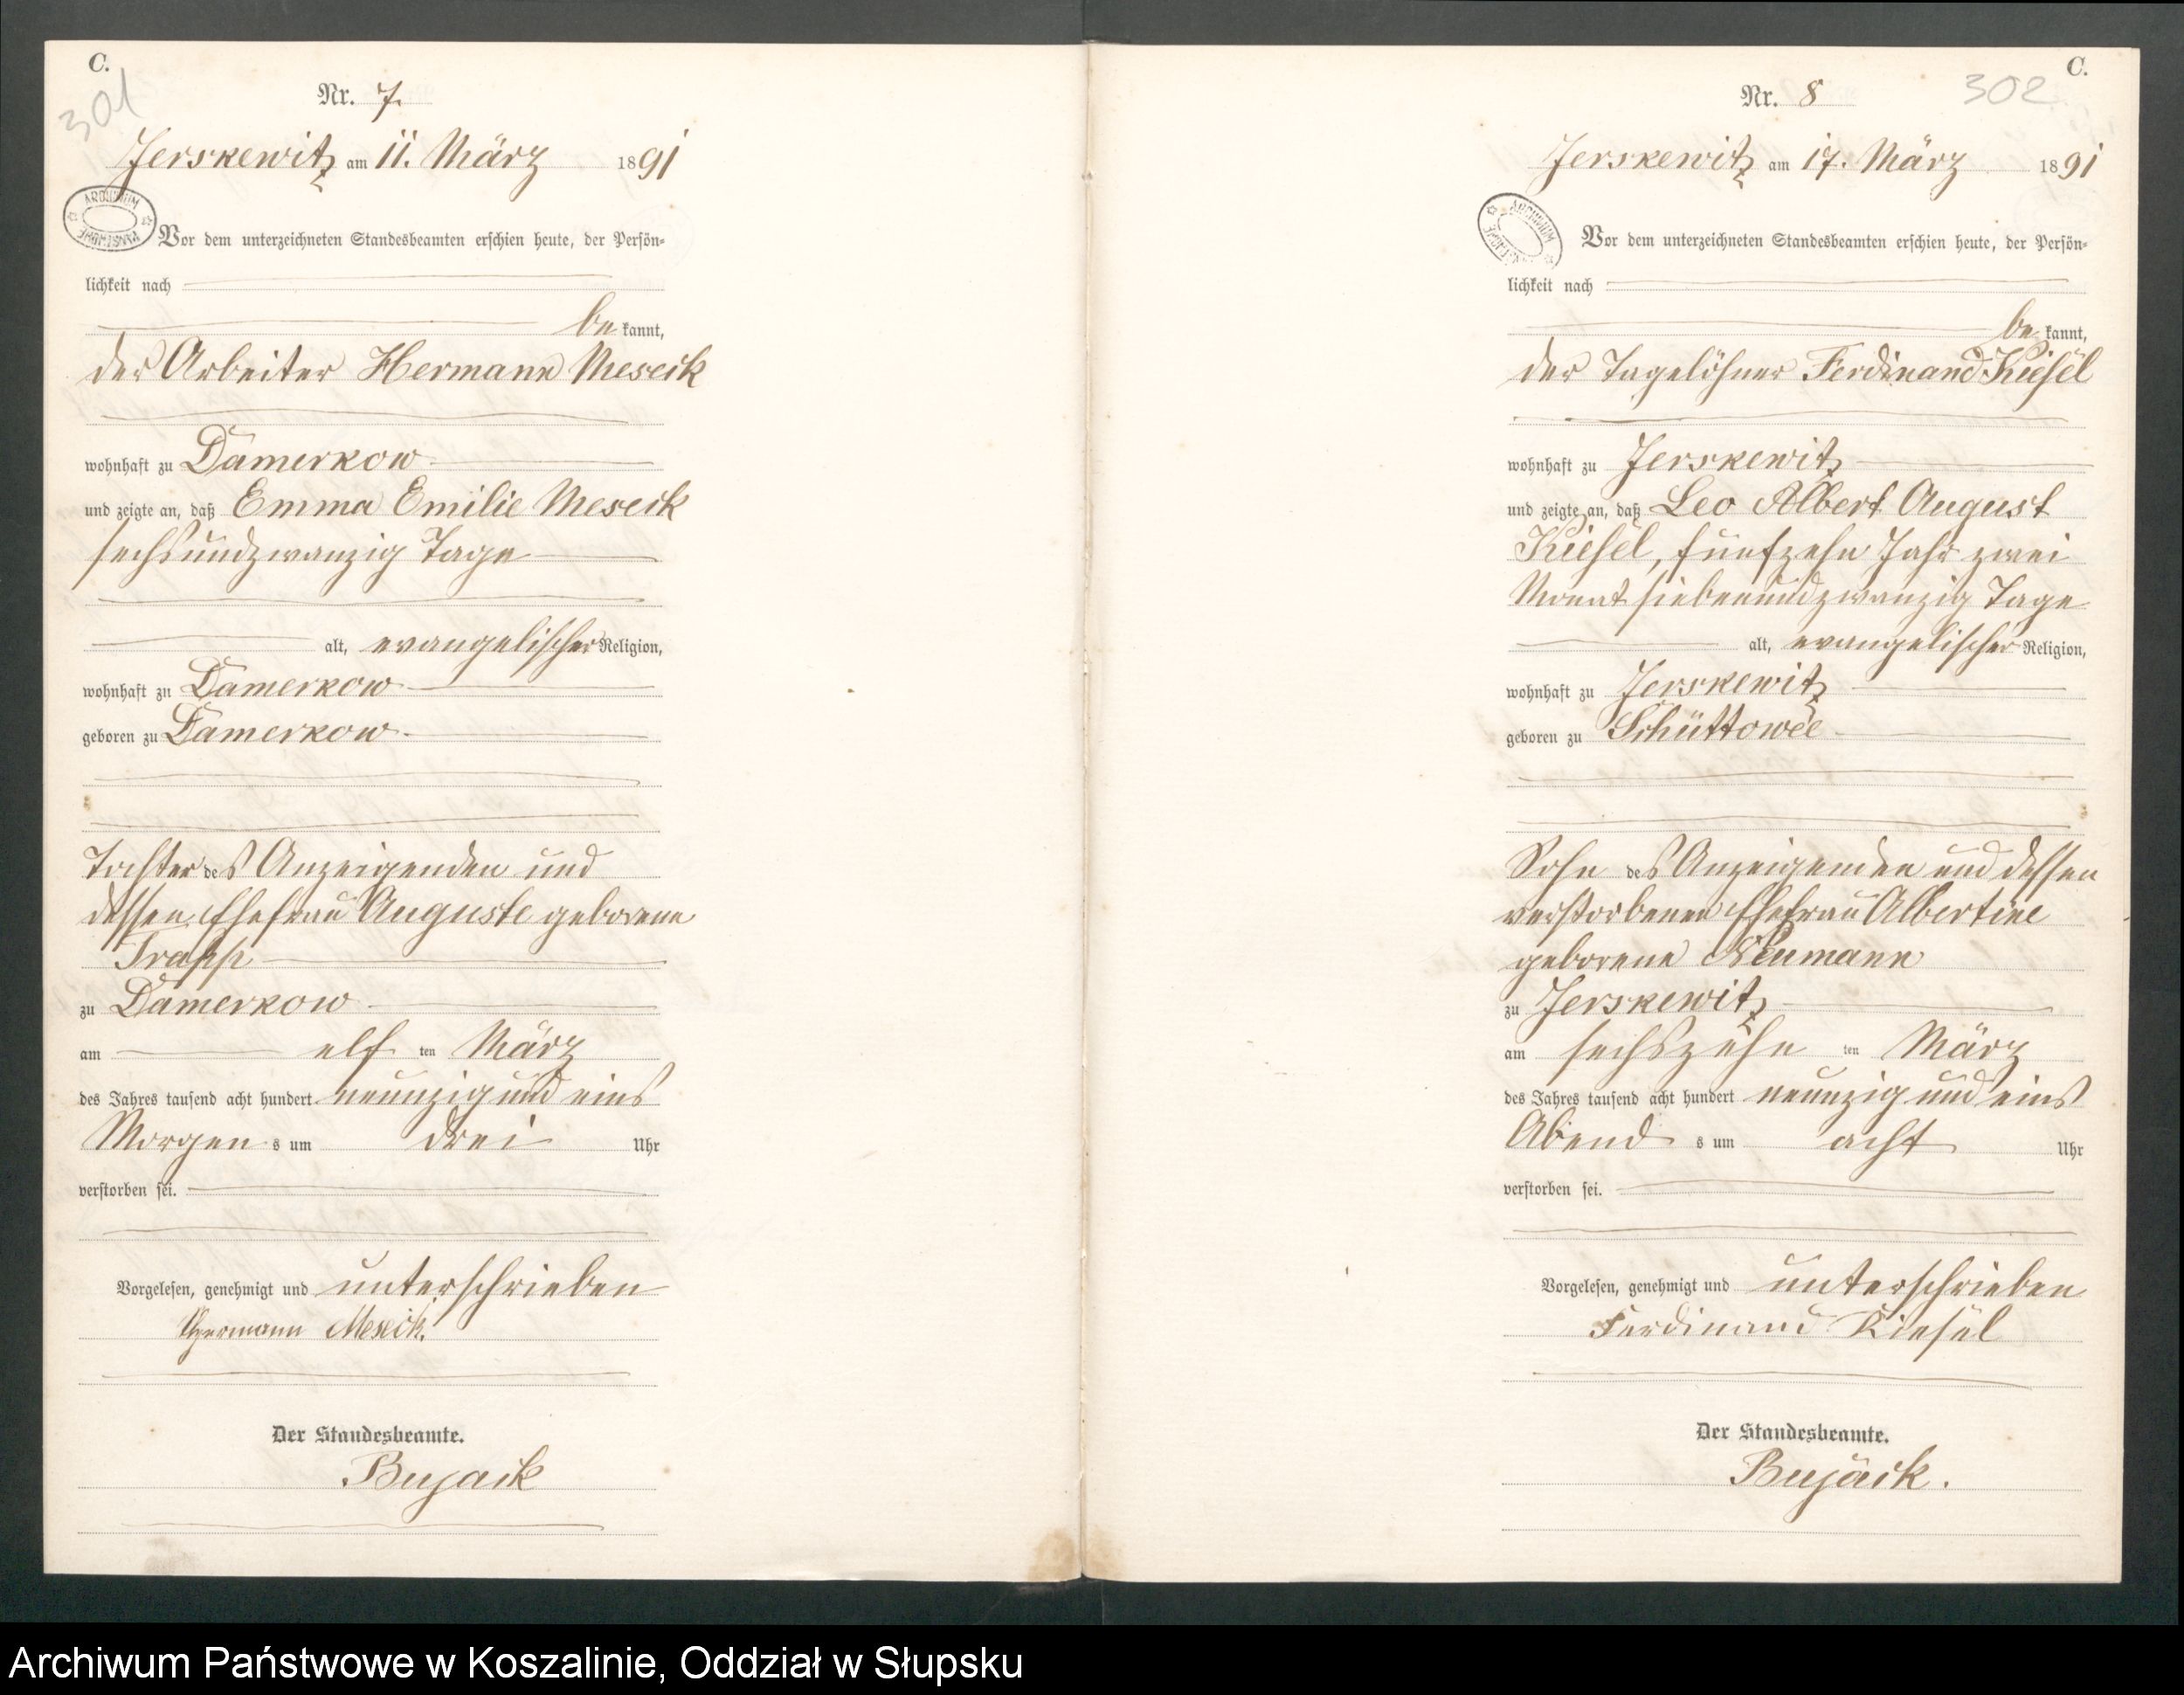 C.
301
Nr. 7.
Jerskewitz am 11. März 1891
ARCHIWUM PAŃSTWOWE
Vor dem unterzeichneten Standesbeamten erschien heute, der Persön-
lichkeit nach
be kannt,
der Arbeiter Hermann Meseck
wohnhaft zu Damerkow
und zeigte an, daß Emma Emilie Meseck
sechsundzwanzig Tage
alt, evangelischer Religion,
wohnhaft zu Damerkow
geboren zu Damerkow
Tochter des Anzeigenden und
dessen Ehefrau Auguste geborene
Trapp
zu Damerkow
am elf ten März
des Jahres tausend acht hundert neunzig und eins
Morgen s um drei Uhr
verstorben sei.
Vorgelesen, genehmigt und unterschrieben
Hermann Meseck.
Der Standesbeamte.
Bujack
C.
302
Nr. 8
Jerskewitz am 17. März 1891
ARCHIWUM PAŃSTWOWE
Vor dem unterzeichneten Standesbeamten erschien heute, der Persön-
lichkeit nach
be kannt,
der Tagelöhner Ferdinand Kiesel
wohnhaft zu Jerskewitz
und zeigte an, daß Leo Albert August
Kiesel, fünfzehn Jahr zwei
Monat siebenundzwanzig Tage
alt, evangelischer Religion,
wohnhaft zu Jerskewitz
geboren zu
Sohn des Anzeigenden und dessen
verstorbenen Ehefrau Albertine
geborene Neumann
zu Jerskewitz
am sechszehn ten März
des Jahres tausend acht hundert neunzig und eins
Abend s um acht Uhr
verstorben sei.
Vorgelesen, genehmigt und unterschrieben
Ferdinand Kiesel
Der Standesbeamte.
Bujack.
Archiwum Państwowe w Koszalinie, Oddział w Słupsku